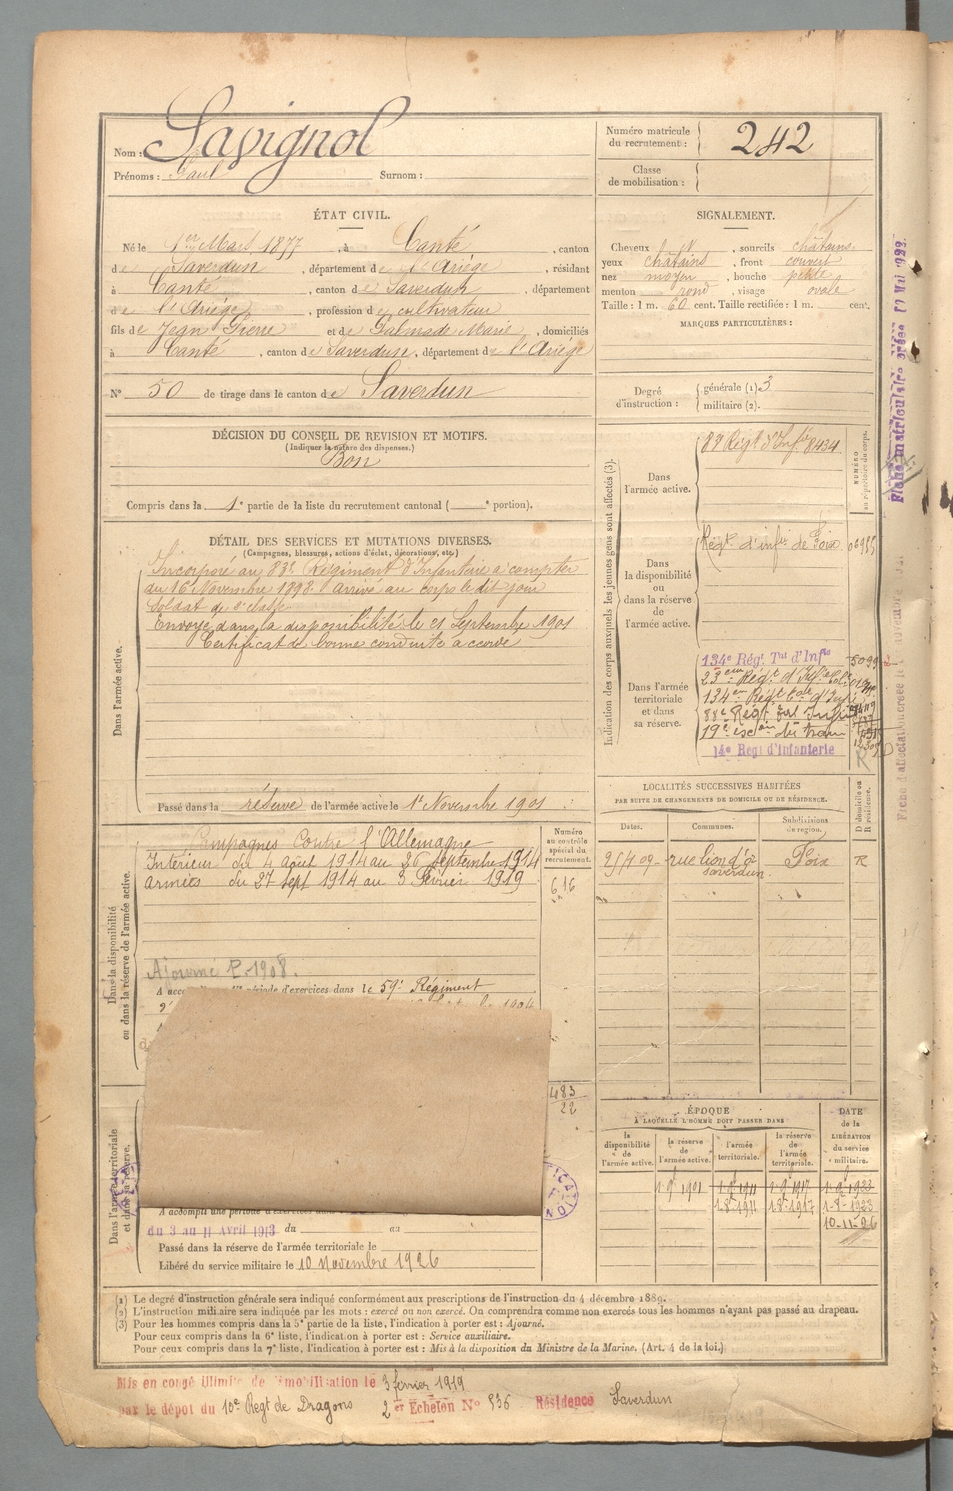 Nom : Savignol
Prénoms : Paul Surnom :
Numéro matricule du recrutement : 242
Classe de mobilisation :
ÉTAT CIVIL.
Né le 1er Mars 1877, à Canté, canton
de Saverdun, département de l'Ariége, résidant
à Canté, canton de Saverdun, département
de l'Ariége, profession de cultivateur
fils de Jean Pierre et de Galmade Marie, domiciliés
à Canté, canton de Saverdun, département de l'Ariége
N° 50 de tirage dans le canton de Saverdun
SIGNALEMENT.
Cheveux, sourcils châtains
yeux châtains, front couvert
nez moyen, bouche petite
menton rond, visage ovale
Taille : 1 m. 60 cent. Taille rectifiée : 1 m. cent.
MARQUES PARTICULIÈRES :
Degré d'instruction : générale (1) 3
militaire (2).
DÉCISION DU CONSEIL DE REVISION ET MOTIFS.
(Indiquer la nature des dispenses.)
Bon
Compris dans la 1e partie de la liste du recrutement cantonal ( e portion).
DÉTAIL DES SERVICES ET MUTATIONS DIVERSES.
(Campagnes, blessures, actions d'éclat, décorations, etc.)
Dans l'armée active.
Incorporé au 83e Régiment d'Infanterie à compter
du 16 Novembre 1898 arrivé au corps le dit jour
Soldat de 2e classe
Envoyé dans la disponibilité le 21 Septembre 1901
Certificat de bonne conduite accordé
Passé dans la réserve de l'armée active le 1er Novembre 1901
Indication des corps auxquels les jeunes gens sont affectés (3).
NUMÉRO au répertoire du corps.
Dans l'armée active.
Régt d'Infie 8434
Dans la disponibilité ou dans la réserve de l'armée active.
Régt d'infie de Foix
Dans l'armée territoriale et dans sa réserve.
134e Régt Tal d'Infie 5099
23em Régt d'Infie Cole
134em Régt d'Inf
88e Régt Inf
19e escon du train
14e Régt d'Infanterie
R
LOCALITÉS SUCCESSIVES HABITÉES
PAR SUITE DE CHANGEMENTS DE DOMICILE OU DE RÉSIDENCE.
Dates. Communes. Subdivisions de région. D domicile ou R résidence.
rue lion d'or Saverdun Foix R
Dans la disponibilité ou dans la réserve de l'armée active.
Numéro au contrôle spécial du recrutement.
Campagnes Contre l'Allemagne
Intérieur du 4 août 1914 au 26 septembre 1914
Armées du 27 sept 1914 au 3 Février 1919
616
Ajourné P. 1908.
période d'exercices dans le 59e Régiment
1904
483
22
Dans l'armée territoriale et dans sa réserve.
A accompli une période d'exercices dans
du 3 au 11 Avril 1913 du au
Passé dans la réserve de l'armée territoriale le
Libéré du service militaire le 10 Novembre 1926
ÉPOQUE
À LAQUELLE L'HOMME DOIT PASSER DANS
la disponibilité de l'armée active. la réserve de l'armée active. l'armée territoriale. la réserve de l'armée territoriale.
DATE de la LIBÉRATION du service militaire.
1-9bre 1901 1-9bre 1911 1-9bre 1917 1-9bre 1923
1-8-1911 1-8-1917 1-8-1923
10-11-26
(1) Le degré d'instruction générale sera indiqué conformément aux prescriptions de l'instruction du 4 décembre 1889.
(2) L'instruction militaire sera indiquée par les mots : exercé ou non exercé. On comprendra comme non exercés tous les hommes n'ayant pas passé au drapeau.
(3) Pour les hommes compris dans la 5e partie de la liste, l'indication à porter est : Ajourné.
Pour ceux compris dans la 6e liste, l'indication à porter est : Service auxiliaire.
Pour ceux compris dans la 7e liste, l'indication à porter est : Mis à la disposition du Ministre de la Marine. (Art. 4 de la loi.)
Mis en congé illimité de démobilisation le 3 février 1919
par le dépôt du 10e Regt de Dragons 2 er Echelon N° 536 Résidence Saverdun
Fiche matriculaire créée
Fiche d'affectation créée le